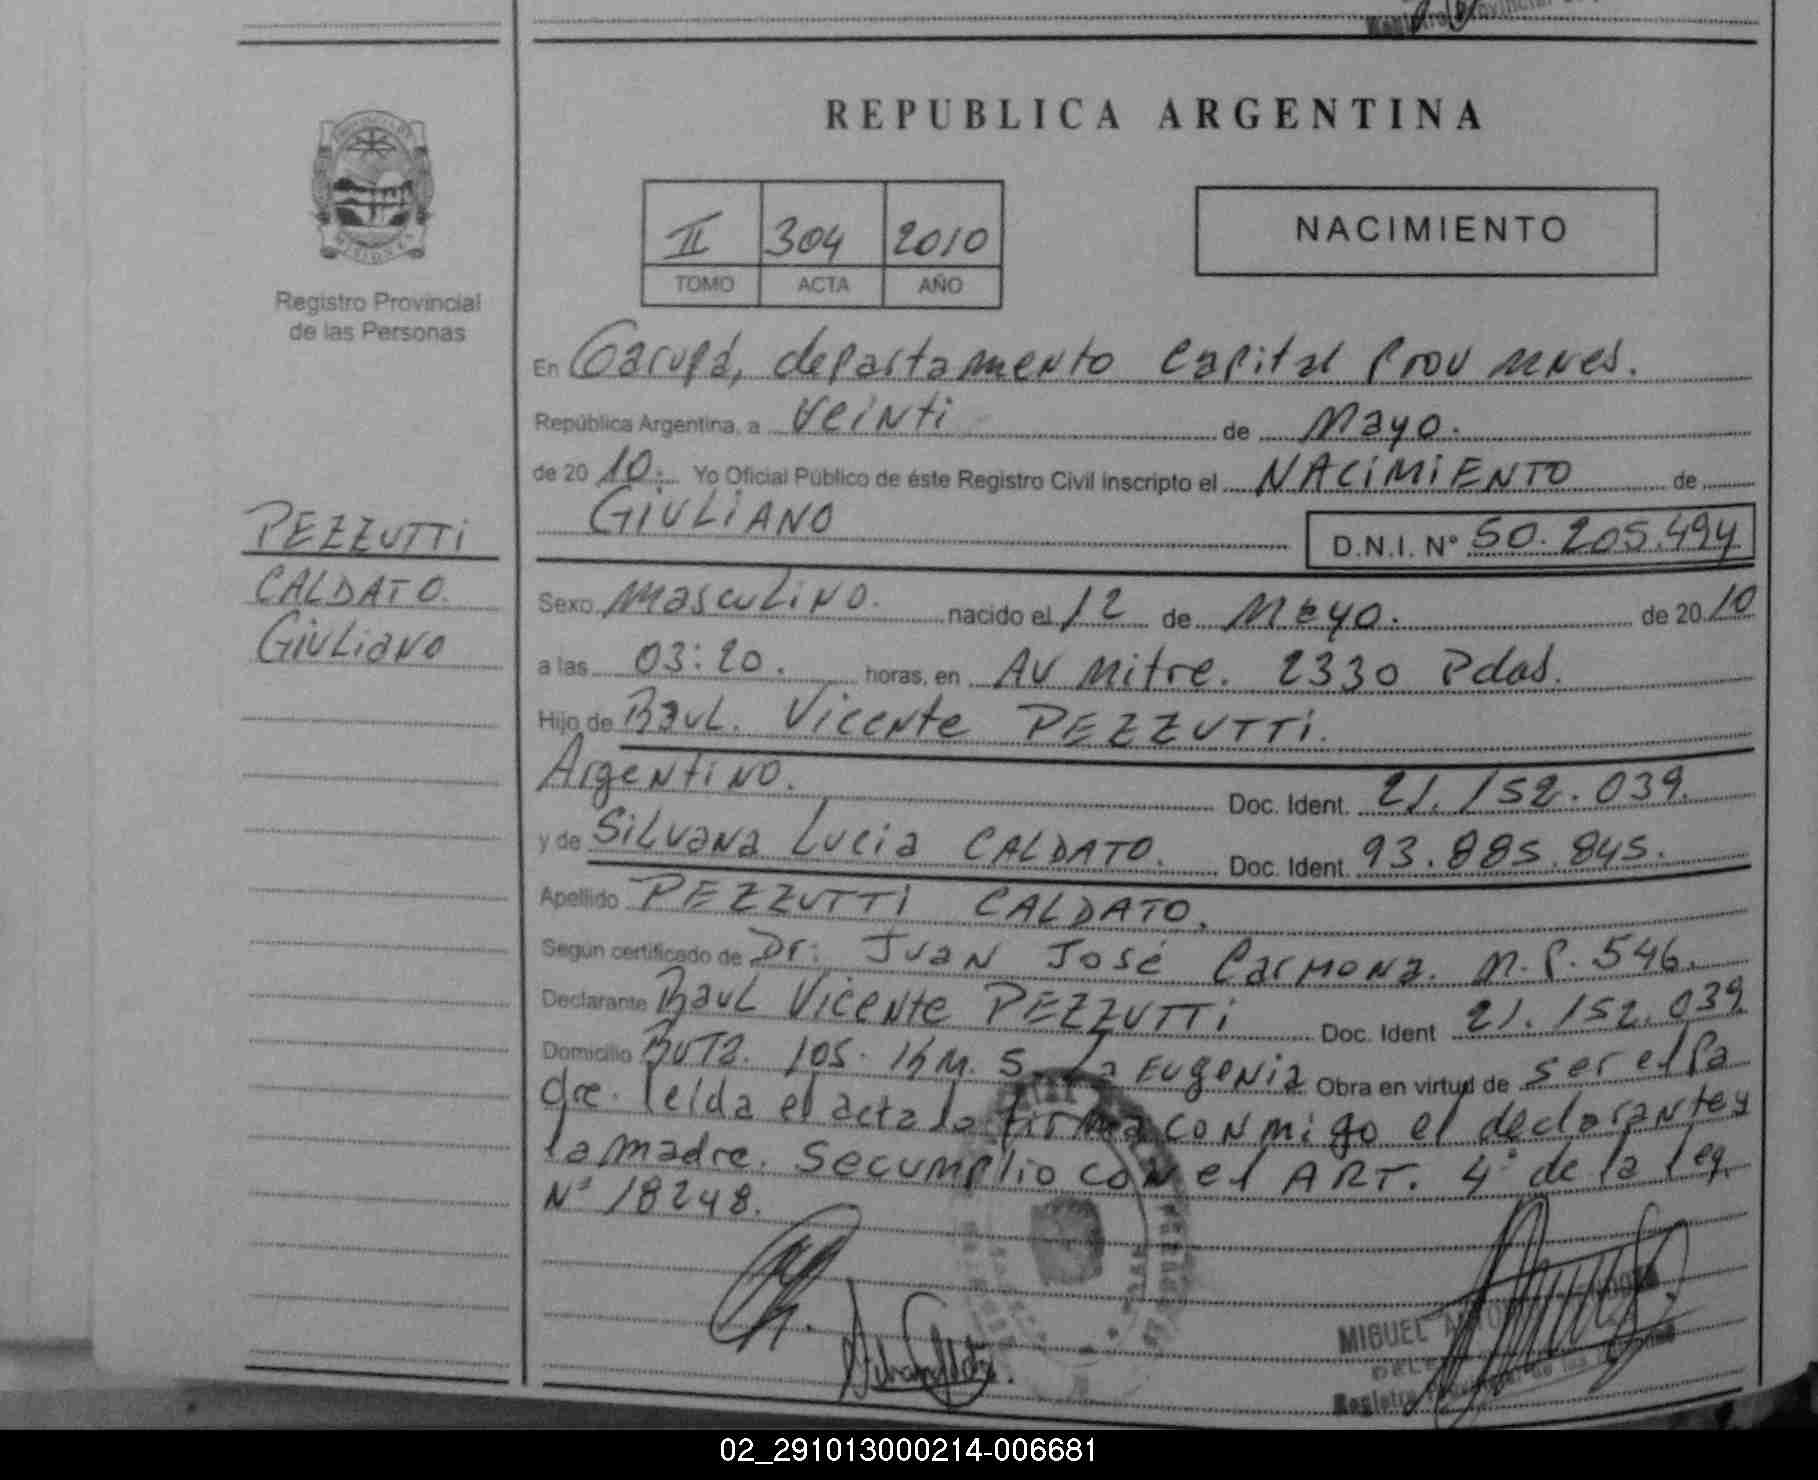 REPUBLICA ARGENTINA
II 304 2010
TOMO ACTA AÑO
NACIMIENTO
Registro Provincial
de las Personas
PEZZUTTI
CALDATO.
GIULIANO
En Garupá, departamento Capital Prov mnes.
República Argentina, a Veinti de Mayo.
de 20 10. Yo Oficial Público de éste Registro Civil inscripto el NACIMIENTO de
GIULIANO D.N.I. Nº 50.205.494
Sexo masculino. nacido el 12 de Mayo. de 20 10
a las 03:20. horas, en AV Mitre. 2330 Pdas.
Hijo de Raul. Vicente PEZZUTTI.
Argentino. Doc. Ident. 21.152.039.
y de Silvana Lucia CALDATO. Doc. Ident. 93.885.845.
Apellido PEZZUTTI CALDATO.
Según certificado de Dr: Juan José Carmona. M.P. 546.
Declarante Raul Vicente PEZZUTTI Doc. Ident 21.152.039
Domicilio RUTA. 105. KM. 5. La Eugenia Obra en virtud de ser el Pa
dre. leida el acta la firma conmigo el declarante y
la madre. Se cumplio con el ART. 4º de la leq.
Nº 18248.
MIGUEL
Registro Provincial de las Personas
02_291013000214-006681